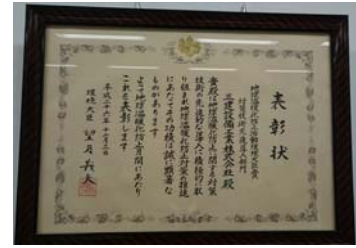 表彰状
地球温暖化防止活動環境大臣表彰
対策技術先進導入部門
三建設備工業株式会社 殿
貴殿は地球温暖化防止に関する対策
技術の先進的な導入に積極的に取
り組まれ地球温暖化防止対策の推進
にあたってその功績は誠に顕著な
ものがあります
よって地球温暖化防止月間にあたり
これを表彰します
平成二十六年十二月三日
環境大臣 望月義夫